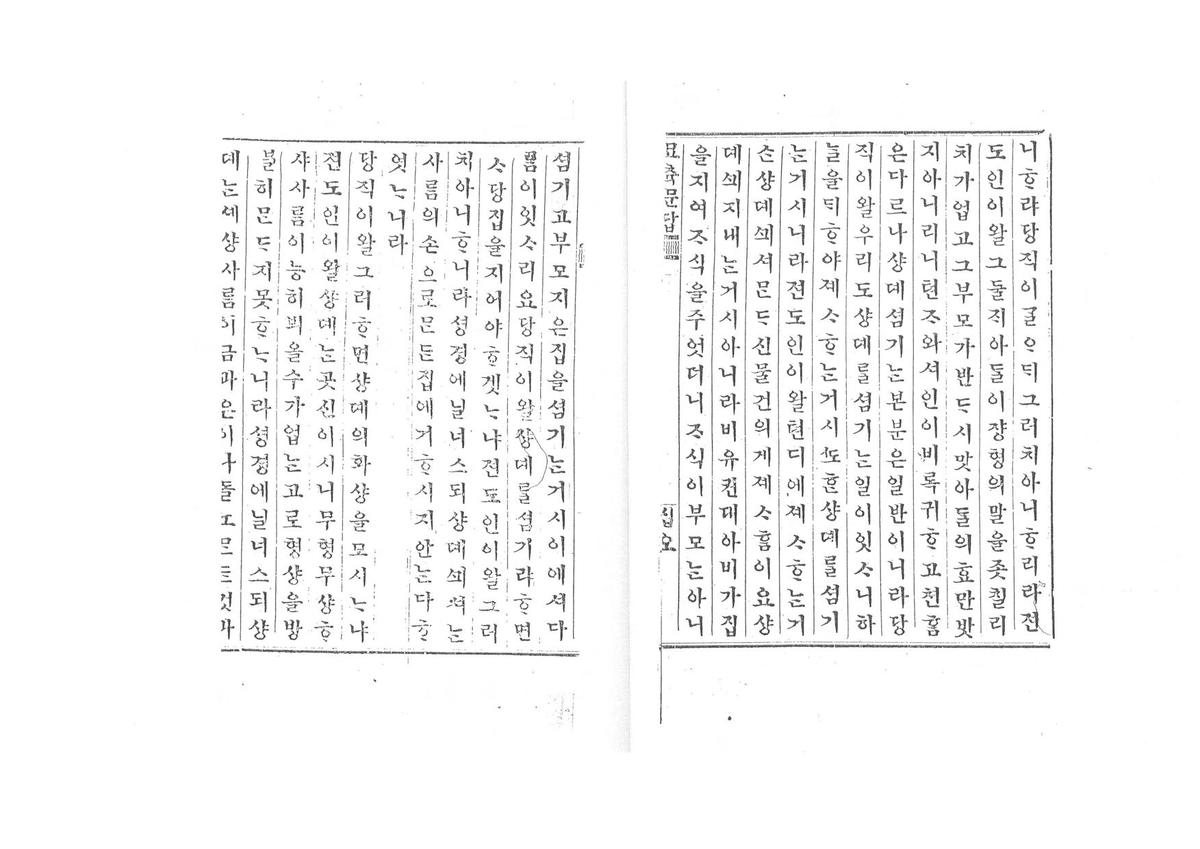 니ᄒᆞ랴당직이ᄀᆞᆯᄋᆞᄃᆡ그러치아니ᄒᆞ리라젼
도인이왈그둘ᄌᆡ아ᄃᆞᆯ이쟝형의말을좃칠리
치가업고그부모가반ᄃᆞ시맛아ᄃᆞᆯ의효만밧
지아니리니텬ᄌᆞ와셔인이비록귀ᄒᆞ고쳔홈
은다르나샹뎨셤기ᄂᆞᆫ본분은일반이니라당
직이왈우리도샹뎨ᄅᆞᆯ셤기ᄂᆞᆫ일이잇ᄉᆞ니하
ᄂᆞᆯ을ᄃᆡᄒᆞ야졔ᄉᆞᄒᆞᄂᆞᆫ거시ᄯᅩᄒᆞᆫ샹뎨ᄅᆞᆯ셤기
ᄂᆞᆫ거시니라젼도인이왈텬디에졔ᄉᆞᄒᆞᄂᆞᆫ거
슨샹뎨ᄭᅴ셔ᄆᆞᆫᄃᆞ신물건의게졔ᄉᆞ홈이요샹
뎨ᄭᅴ지내ᄂᆞᆫ거시아니라비유컨대아비가집
을지여ᄌᆞ식을주엇더니ᄌᆞ식이부모ᄂᆞᆫ아니
묘츅문답
십오
셤기고부모지은집을셤기ᄂᆞᆫ거시이에셔다
ᄅᆞᆷ이잇ᄉᆞ리요당직이왈샹뎨ᄅᆞᆯ셤기랴ᄒᆞ면
ᄉᆞ당집을지어야ᄒᆞ겟ᄂᆞ냐젼도인이왈그러
치아니ᄒᆞ니라셩경에닐너스되샹뎨ᄭᅴ셔ᄂᆞᆫ
사ᄅᆞᆷ의손으로ᄆᆞᆫ든집에거ᄒᆞ시지안ᄂᆞᆫ다ᄒᆞ
엿ᄂᆞ니라
당직이왈그러ᄒᆞ면샹뎨의화샹을모시ᄂᆞ냐
젼도인이왈샹뎨ᄂᆞᆫ곳신이시니무형무샹ᄒᆞ
샤사ᄅᆞᆷ이능히뵈올수가업ᄂᆞᆫ고로형샹을방
불히ᄆᆞᆫᄃᆞ지못ᄒᆞᄂᆞ니라셩경에닐너스되샹
뎨ᄂᆞᆫ셰샹사ᄅᆞᆷ이금과은이나돌노ᄆᆞᆫᄃᆞᆫ것과